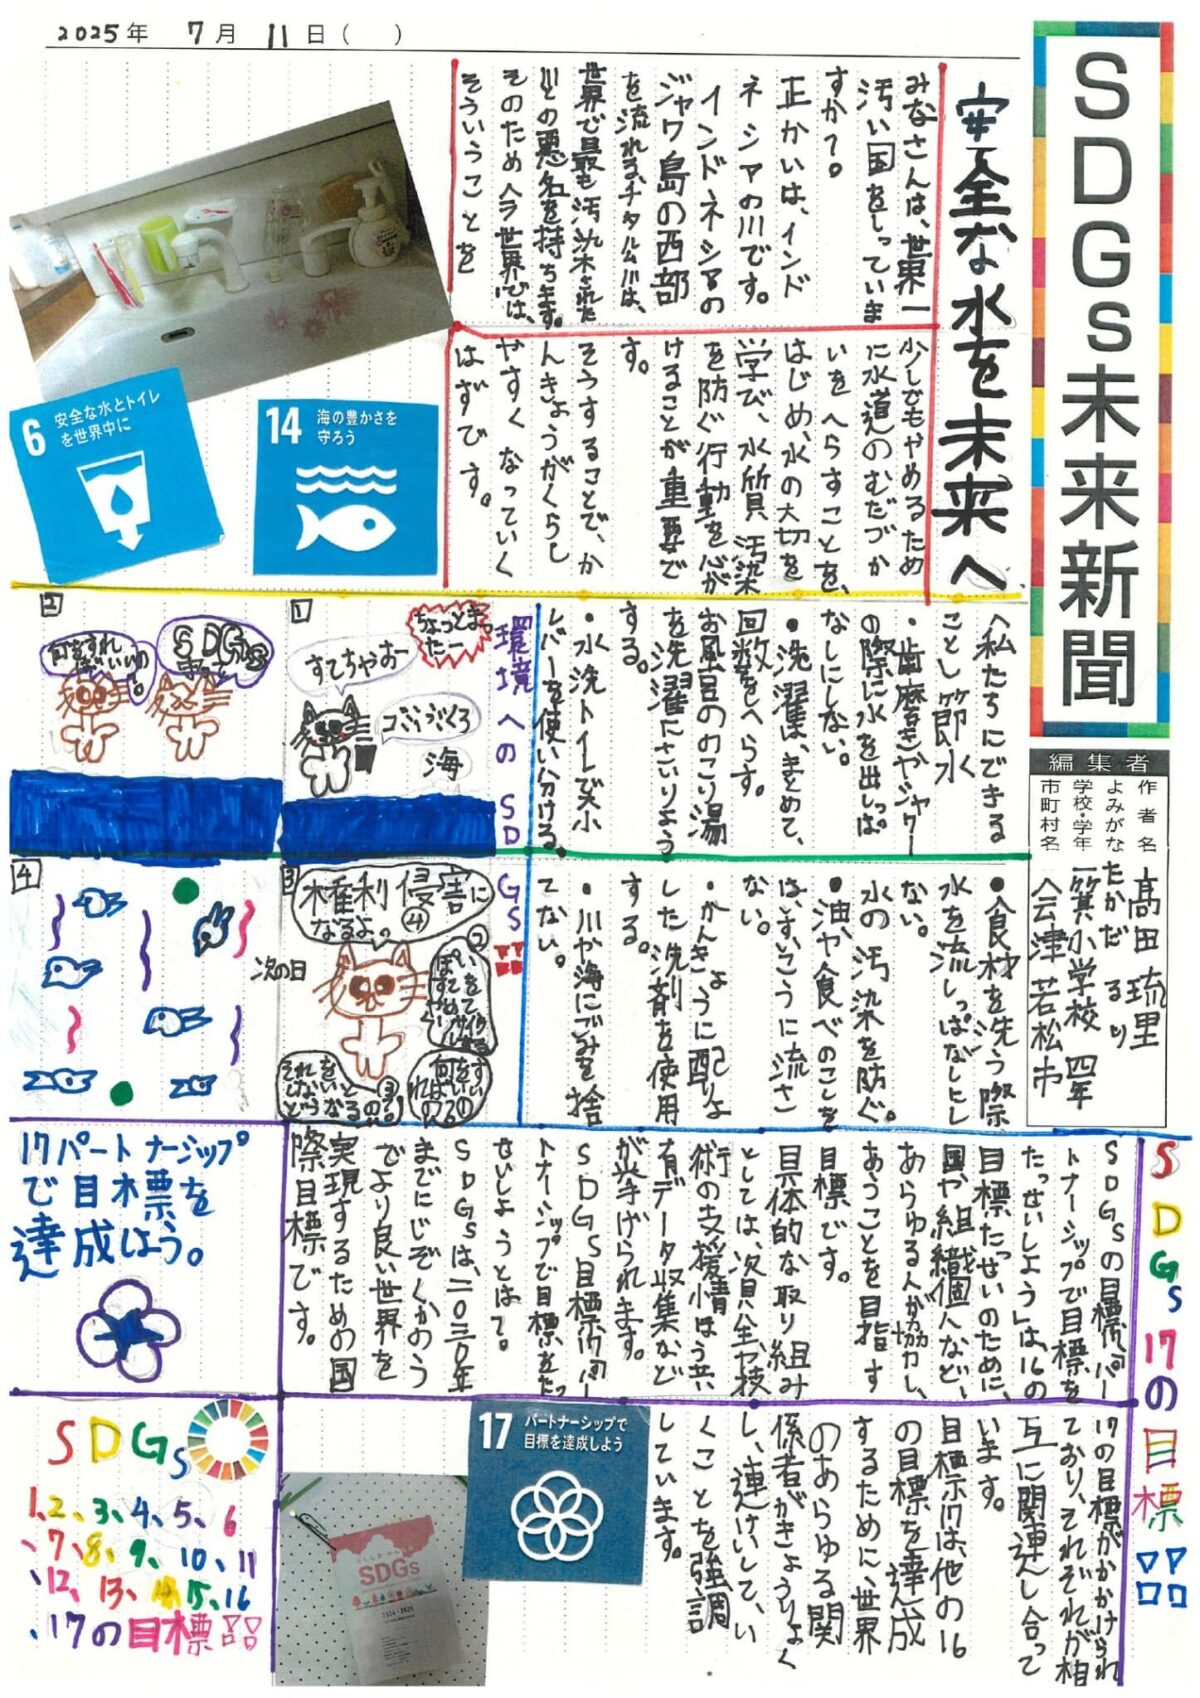 2025年 7月 11日( )
SDGs未来新聞
編集者
作者名
よみがな
学校・学年
市町村名
髙田 琉里
たかだ るり
一箕小学校 四年
会津若松市
安全な水を未来へ
みなさんは、世界一
汚い国をしっていま
すか?。
正かいは、インド
ネシアの川です。
インドネシアの
ジャワ島の西部
を流れるチタルム川は、
世界で最も汚染された
川との悪名を持ちます。
そのため今世界では、
そういうことを
少しでもやめるため
に水道のむだづか
いをへらすことを、
はじめ、水の大切を
学び、水質汚染
を防ぐ行動を心が
けることが重要で
す。
そうすることで、か
んきょうがくらし
やすくなっていく
はずです。
6 安全な水とトイレ
を世界中に
14 海の豊かさを
守ろう
〈私たちにできる
こと〉節水
・歯磨きやシャワー
の際に水を出しっぱ
なしにしない。
・洗濯は、まとめて、
回数をへらす。
お風呂ののこり湯
を洗濯にさいりよう
する。
・水洗トイレで大小
レバーを使い分ける。
・食材を洗う際、
水を流しっぱなしにし
ない。
水の汚染を防ぐ。
・油や食べのこしを
はいすいこうに流さ
ない。
・かんきょうに配りよ
した洗剤を使用
する。
・川や海にごみを捨
てない。
環境へのSDGs
1
ちょっとまっ
たー
すてちゃおー
ごみぶくろ
海
2
SDGs
何をすれ
ばいいの
3
権利侵害に
なるよ。
④
次の日
4
SDGs17の目標
SDGsの目標17「パー
トナーシップで目標を
たっせいしよう」は、16の
目標たっせいのために、
国や組織、個人など、
あらゆる人が協力し、
あうことを目指す
目標です。
具体的な取り組み
としては、資金や技
術の支援、情ほう共
有データ収集など
が挙げられます。
SDGS目標17「パー
トナーシップで目標をたっ
せいしようとは?。
SDGsは、二〇三〇年
までにじぞくかのう
でより良い世界を
実現するための国
際目標です。
17の目標がかかげられ
ており、それぞれが相
互に関連し合って
います。
目標17は、他の16
の目標を達成
するために、世界
のあらゆる関
係者がきょうりょく
し、連けいして、い
くことを強調
しています。
17 パートナーシップで
目標を達成しよう
SDGs
17パートナーシップ
で目標を
達成しよう。
SDGs
1、2、3、4、5、6
、7、8、9、10、11
、12、13、14、15、16
、17の目標